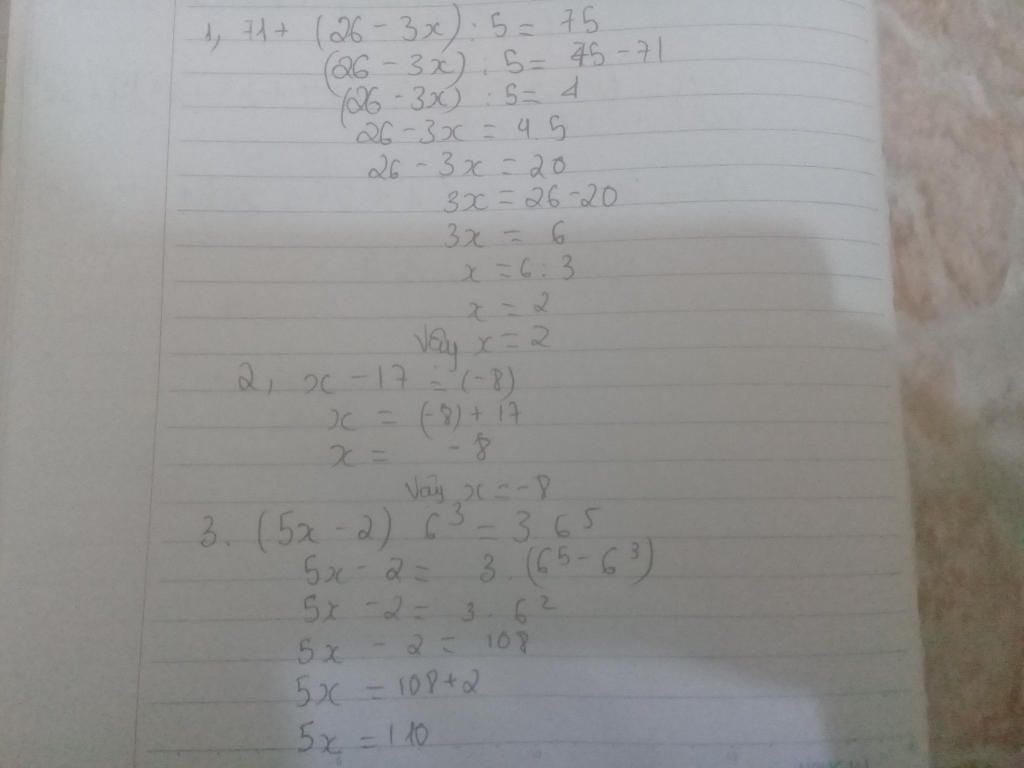 1, 71+ (26 - 3x) : 5 = 75
(26 - 3x) : 5 = 75 - 71
(26 - 3x) : 5 = 4
26 - 3x = 4 5
26 - 3x = 20
3x = 26 - 20
3x = 6
x = 6 : 3
x = 2
Vậy x = 2
2, x - 17 = (-8)
x = (-8) + 17
x = - 8
Vậy x = -8
3. (5x - 2) 6³ = 3.6⁵
5x - 2 = 3 . (6⁵ - 6³)
5x - 2 = 3 . 6²
5x - 2 = 108
5x = 108 + 2
5x = 110